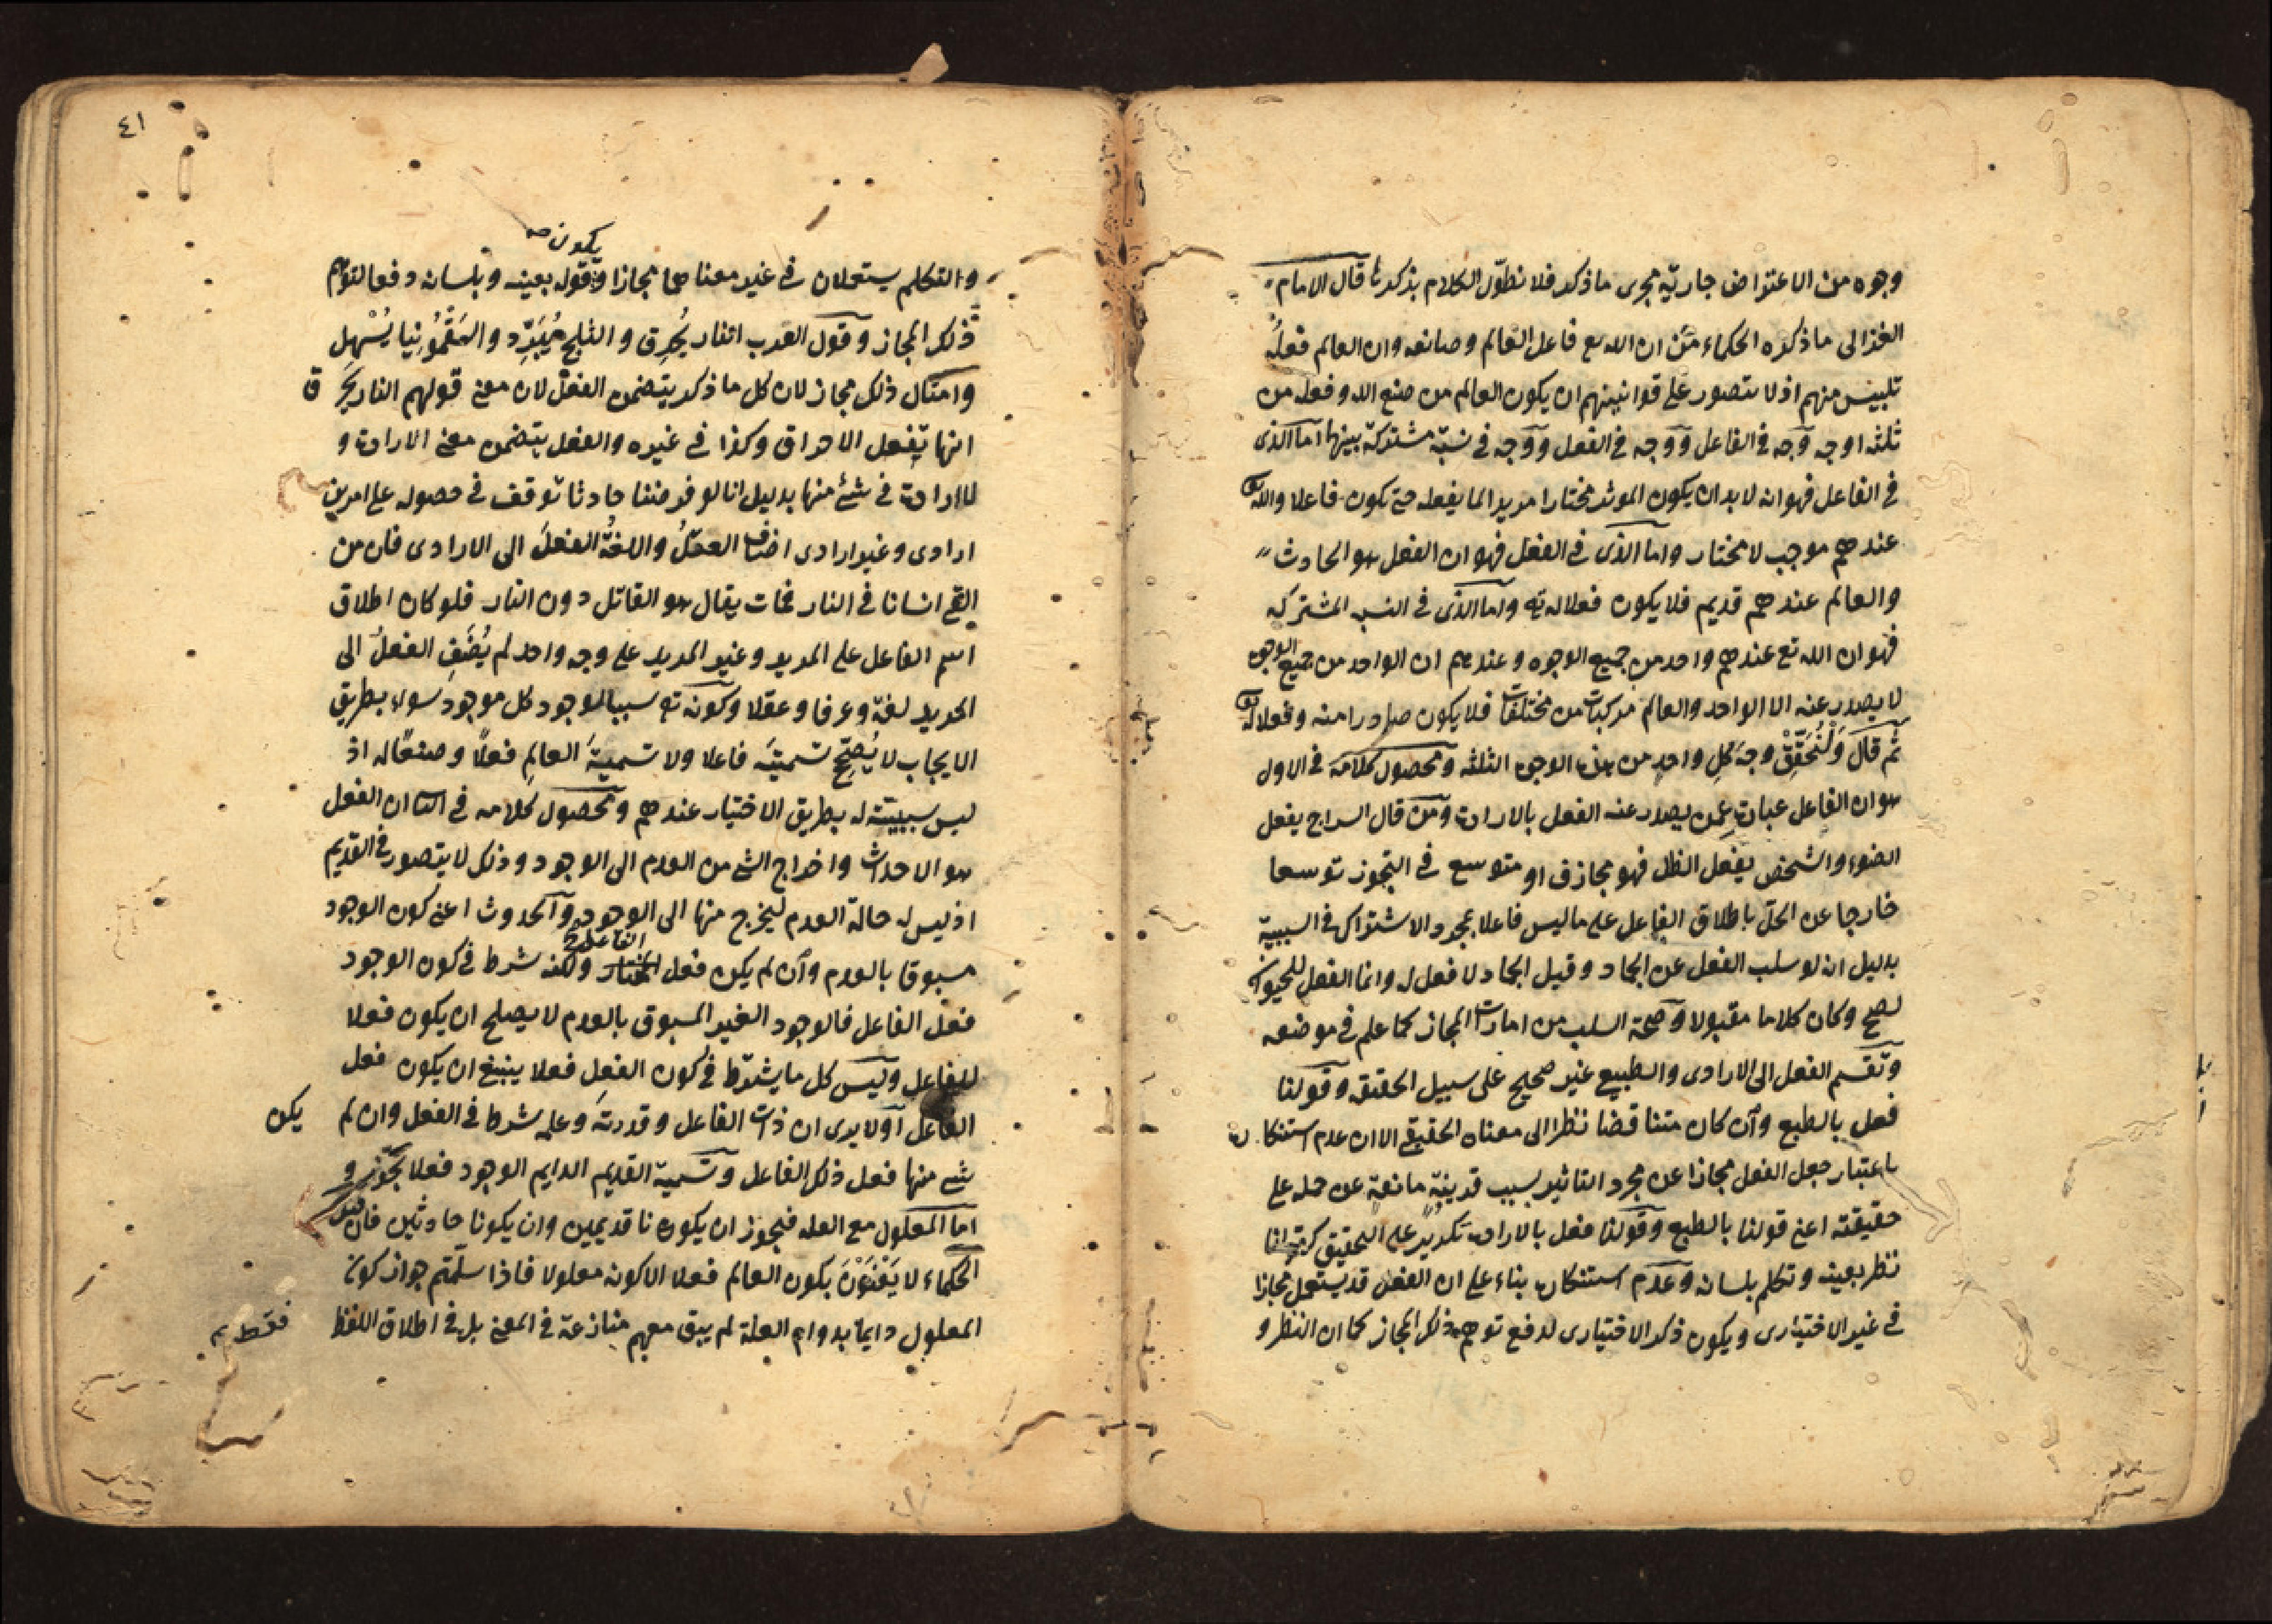 وجوه من الاعتراض جارية مجرى ما ذكر فلا نطول الكلام بذكرها قال الامام
الغزالى ما ذكره الحكماء من ان الله تع فاعل العالم وصانعه وان العالم فعله
تلبيس منهم اذ لا يتصور على قوانينهم ان يكون العالم من صنع الله وفعله من
ثلثه اوجه وجه فى الفاعل ووجه فى الفعل ووجه فى نسبة مشتركة بينهما اما الذى
فى الفاعل فهو انه لا بد ان يكون الموثر مختارا مريدا لما يفعله حتى يكون فاعلا والله تع
عندهم موجب لا مختار واما الذى فى الفعل فهو ان الفعل هو الحادث
والعالم عندهم قديم فلا يكون فعلا له تع واما الذى فى النسب المشتركه
فهو ان الله تع عندهم واحد من جميع الوجوه وعندهم ان الواحد من جميع الوجوه
لا يصدر عنه الا الواحد والعالم مركبات من مختلفات فلا يكون صادرا منه وفعلا له تع
ثم قال ولنحقق وجه كل واحد من هذه الوجوه الثلثه ومحصول كلامه فى الاول
هو ان الفاعل عبارة عمن يصدر عنه الفعل بالارادة ومن قال السراج يفعل
الضوء والشخص يفعل الظل فهو مجازف او متوسع فى التجوز توسعا
خارجا عن الحد باطلاق الفاعل على ما ليس فاعلا بمجرد الاشتراك فى السببية
بدليل انه لو سلب الفعل عن الجماد وقيل الجماد لا فعل له وانما الفعل للحيوان
لصح وكان كلاما مقبولا وصحة السلب من امارات المجاز كما علم فى موضعه
وتقسم الفعل الى الارادى والطبيعى غير صحيح على سبيل الحقيقه وقولنا
فعل بالطبع وان كان متناقضا نظرا الى معناه الحقيقى الا ان عدم استنكاره
باعتبار جعل الفعل مجازا عن مجرد التاثير بسبب قرينة مانعة عن حمله على
حقيقته اعنى قولنا بالطبع وقولنا فعل بالارادة تكرير على التحقيق كقولنا
نظر بعينه وتكلم بلسانه وعدم استنكاره بناء على ان الفعل قد يستعمل مجازا
فى غير الاختيارى ويكون ذكر الاختيارى لدفع توهم ذلك المجاز كما ان النظر و
٤١
يكون صح
والتكلم يستعملان فى غير معناهما مجازا وقوله بعينه وبلسانه دفعا لتوهم
ذلك المجاز وقول العرب النار يُحرِق والثلج يُبَرِّد والسَقَمُونيا يُسْهِل
وامثال ذلك مجاز لان كل ما ذكر يتضمن الفعل لان معنى قولهم النار تحرق
انها تفعل الاحراق وكذا فى غيره والفعل يتضمن معنى الارادة و
لا ارادة فى شئ منها بدليل انا لو فرضنا حادثا توقف فى حصوله على امرين
ارادى وغير ارادى اضاف العقلُ واللغةُ الفعلَ الى الارادى فان من
القى انسانا فى النار فمات يقال هو القاتل دون النار فلو كان اطلاق
اسم الفاعل على المريد وغير المريد على وجه واحد لم يُضَفِ الفعلُ الى
المريد لغة وعرفا وعقلا وكونه تع سببا لوجود كل موجود سواه بطريق
الايجاب لا يُصَحِّح تسميتَه فاعلا ولا تسميةَ العالمِ فعلًا وصنعًا له اذ
ليس سببيته له بطريق الاختيار عندهم ومحصول كلامه فى الثانى ان الفعل
هو الاحداث واخراج الشئ من العدم الى الوجود وذلك لا يتصور فى القديم
اذ ليس له حالة العدم ليخرج منها الى الوجود والحدوث اعنى كون الوجود
الفاعل
مسبوقا بالعدم وان لم يكن فعل المختار ولكنه شرط فى كون الوجود
فعل الفاعل فالوجود الغير المسبوق بالعدم لا يصلح ان يكون فعلا
للفاعل وليس كل ما يشترط فى كون الفعل فعلا ينبغى ان يكون فعل
الفاعل اولا يرى ان ذات الفاعل وقدرته وعلمه شرط فى الفعل وان لم يكن
شئ منها فعل ذلك الفاعل وتسمية القديم الدايم الوجود فعلا تجوّز و
اما المعلول مع العله فيجوز ان يكونا قديمين وان يكونا حادثين فان
الحكماء لا يَعْنُوْنَ بكون العالم فعلا الا كونه معلولا فاذا سلّمتم جواز كون
المعلول دايما بدوام العلة لم يبق معهم منازعة فى المعنى بل فى اطلاق اللفظ فقط